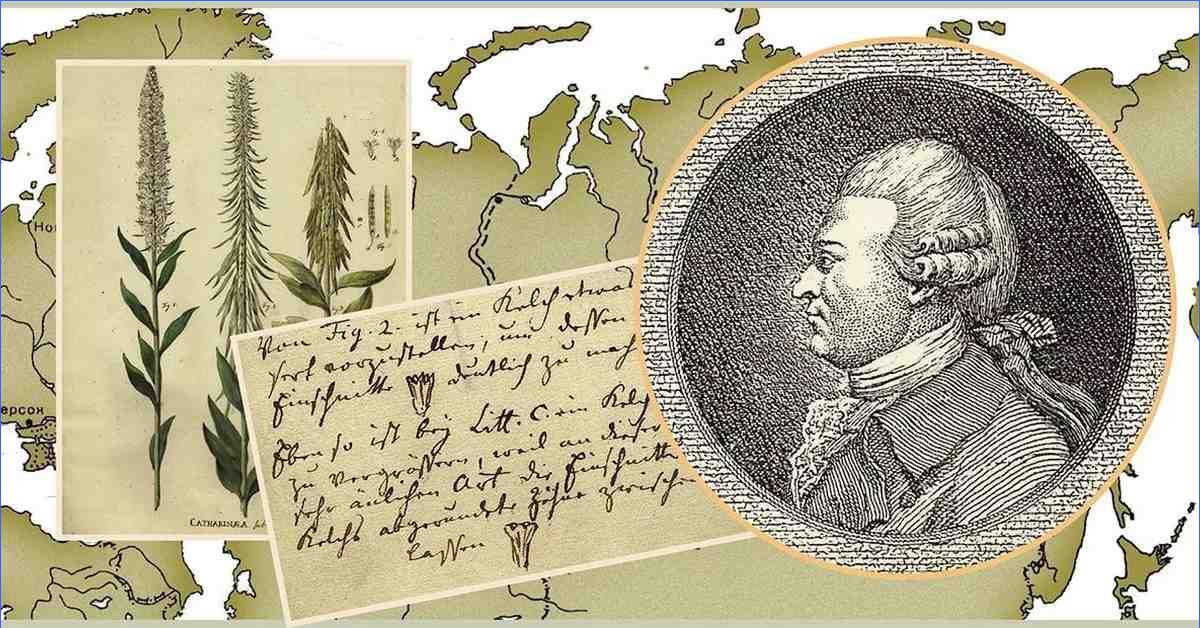 Но
ерсон
Fig. 1.
Fig. 2.
CATHARINÆA
Von Fig. 2. ist ein Kelch etwas
vorzustellen, um dessen
Einschnitte deutlich zu mach
Eben so ist bey Litt. C. ein Kelch
zu vergrössern, weil an dieser
sehr änlichen Art die Einschnitte
Kelchs abgerundete Zähne zwische
lassen